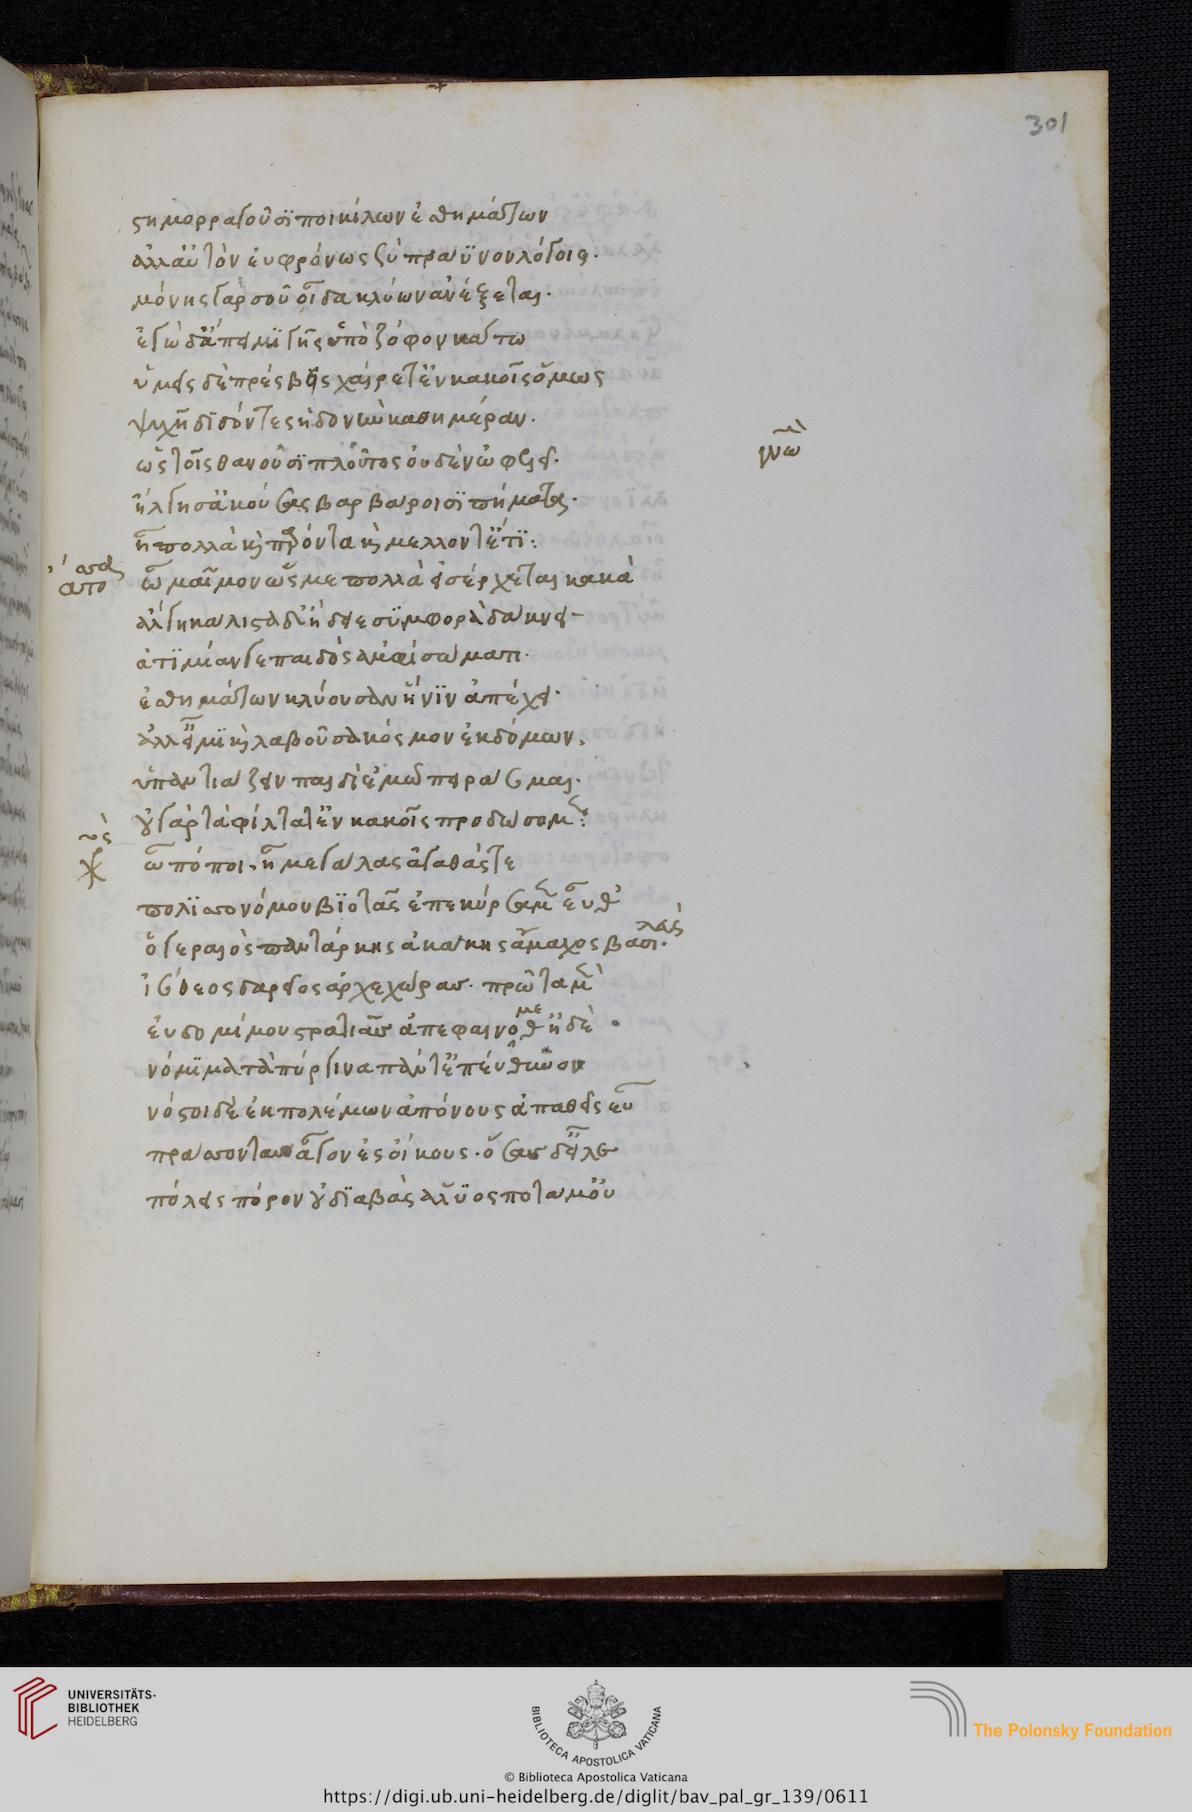 301
στημορραγοῦσι ποικίλων ἐσθημάτων
ἀλλ' αὐτὸν εὐφρόνως σὺ πράϋνον λόγοις.
μόνης γὰρ σοῦ οἶδα κλύων ἀνέξεται.
ἐγὼ δ' ἄπειμι γῆς ὑπὸ ζόφον κάτω
ὑμεῖς δὲ πρέσβεις χαίρετ' ἐν κακοῖς ὅμως
ψυχῇ διδόντες ἡδονὴν καθ' ἡμέραν.
ὡς τοῖς θανοῦσι πλοῦτος οὐδὲν ὠφελεῖ.
γνω
ἤλγησ' ἀκούσας βαρβάροισι πήματα.
ἦ πολλὰ καὶ παρόντα καὶ μέλλοντ' ἔτι:
ἄτοσσα
ὦ δαῖμον ὥς με πολλὰ εἰσέρχεται κακὰ
ἄλγη μάλιστα δ' ἥδε συμφορὰ δάκνει
ἀτιμίαν γε παιδὸς ἀμφὶ σώματι.
ἐσθημάτων κλύουσαν ἥ νιν ἀπέχει.
ἀλλ' εἶμι καὶ λαβοῦσα κόσμον ἐκ δόμων,
ὑπαντιάζειν παιδὶ ἐμῷ πειράσομαι.
οὐ γὰρ τὰ φίλτατ' ἐν κακοῖς προδώσομεν:
χο
ὦ πόποι. ἦ μεγάλας ἀγαθάς τε
πολισσονόμου βιοτᾶς ἐπεκύρσαμεν εὖθ'
ὁ γεραιὸς παντάρκης ἀκάκης ἄμαχος βασιλεὺς
ἰσόθεος δαρεῖος ἆρχε χώρας. πρῶτα μὲν
εὐδοκίμους στρατιὰς ἀπεφαινόμεθ' ἠδὲ
νόμιμα τὰ πύργινα πάντ' ἐπεύθυνον
νόστοι δὲ ἐκ πολέμων ἀπόνους ἀπαθεῖς εὖ
πράσσοντας ἆγον ἐς οἴκους. ὅσας δ' εἷλε
πόλεις πόρον οὐ διαβὰς ἅλυος ποταμοῦ
UNIVERSITÄTS-
BIBLIOTHEK
HEIDELBERG
BIBLIOTECA APOSTOLICA VATICANA
The Polonsky Foundation
© Biblioteca Apostolica Vaticana
https://digi.ub.uni-heidelberg.de/diglit/bav_pal_gr_139/0611